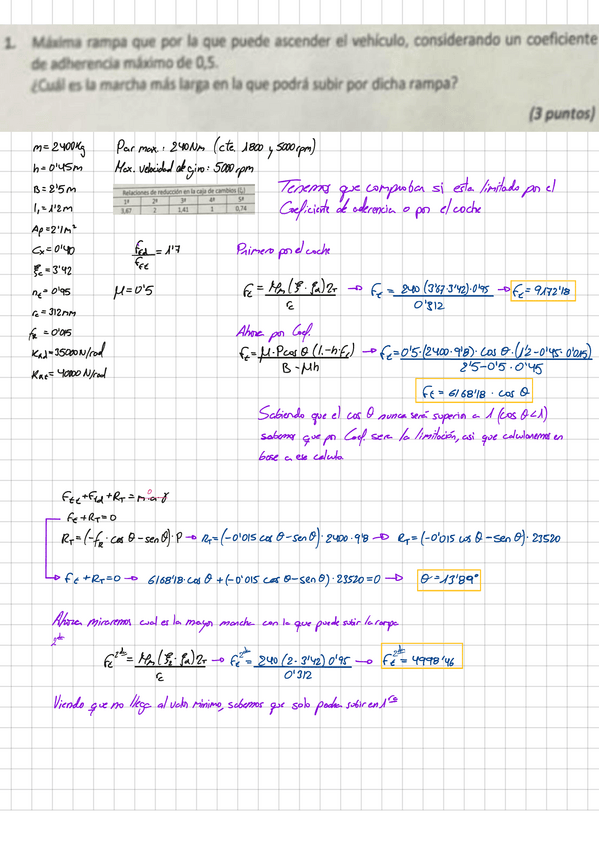 1. Máxima rampa que por la que puede ascender el vehículo, considerando un coeficiente
de adherencia máximo de 0,5.
¿Cuál es la marcha más larga en la que podrá subir por dicha rampa?
(3 puntos)
m = 2400Kg
Par max. : 240Nm (cte. 1800 y 5000rpm)
h = 0'45m
Max. velocidad de giro: 5000 rpm
B = 2'5m
l₁ = 1'2m
Af = 2'1m²
Cx = 0'40
ξc = 3'42
ηt = 0'95
rc = 312mm
fR = 0'015
Kad = 35000 N/rad
Kat = 40800 N/rad
Relaciones de reducción en la caja de cambios (ξj)
1ª 2ª 3ª 4ª 5ª
3,67 2 1,41 1 0,74
Ftd / Ftt = 1'7
μ = 0'5
Tenemos que comprobar si esta limitado por el
Coeficiente de aderencia o por el coche
Primero por el coche
Ft = Mm (ξ · ξc) ηt / rc → Ft = 240 (3'67·3'42)·0'95 / 0'312 → Ft = 9172'18
Ahora por Coef.
Ft = μ · P cos θ (l₁ - h·fr) / B - μh → Ft = 0'5·(2400·9'8)·cos θ·(1'2-0'45·0'015) / 2'5-0'5·0'45
Ft = 6168'18 · cos θ
Sabiendo que el cos θ nunca será superior a 1 (cos θ < 1)
sabemos que por Coef. sera la limitación, asi que calcularemos en
base a ese calculo
Ftt + Ftd + RT = m·a·γ
0
Ft + RT = 0
RT = (-fR · cos θ - sen θ) · P → RT = (-0'015 cos θ - sen θ) · 2400·9'8 → RT = (-0'015 cos θ - sen θ) · 23520
Ft + RT = 0 → 6168'18 · cos θ + (-0'015 cos θ - sen θ) · 23520 = 0 → θ = 13'89°
Ahora miraremos cual es la mayor marcha con la que puede subir la rampa
2da
Ft 2da = Mm (ξ · ξc) ηt / rc → Ft 2da = 240 (2 · 3'42) 0'95 / 0'312 → Ft 2da = 4998'46
Viendo que no llega al valor mínimo, sabemos que solo podra subir en 1ra